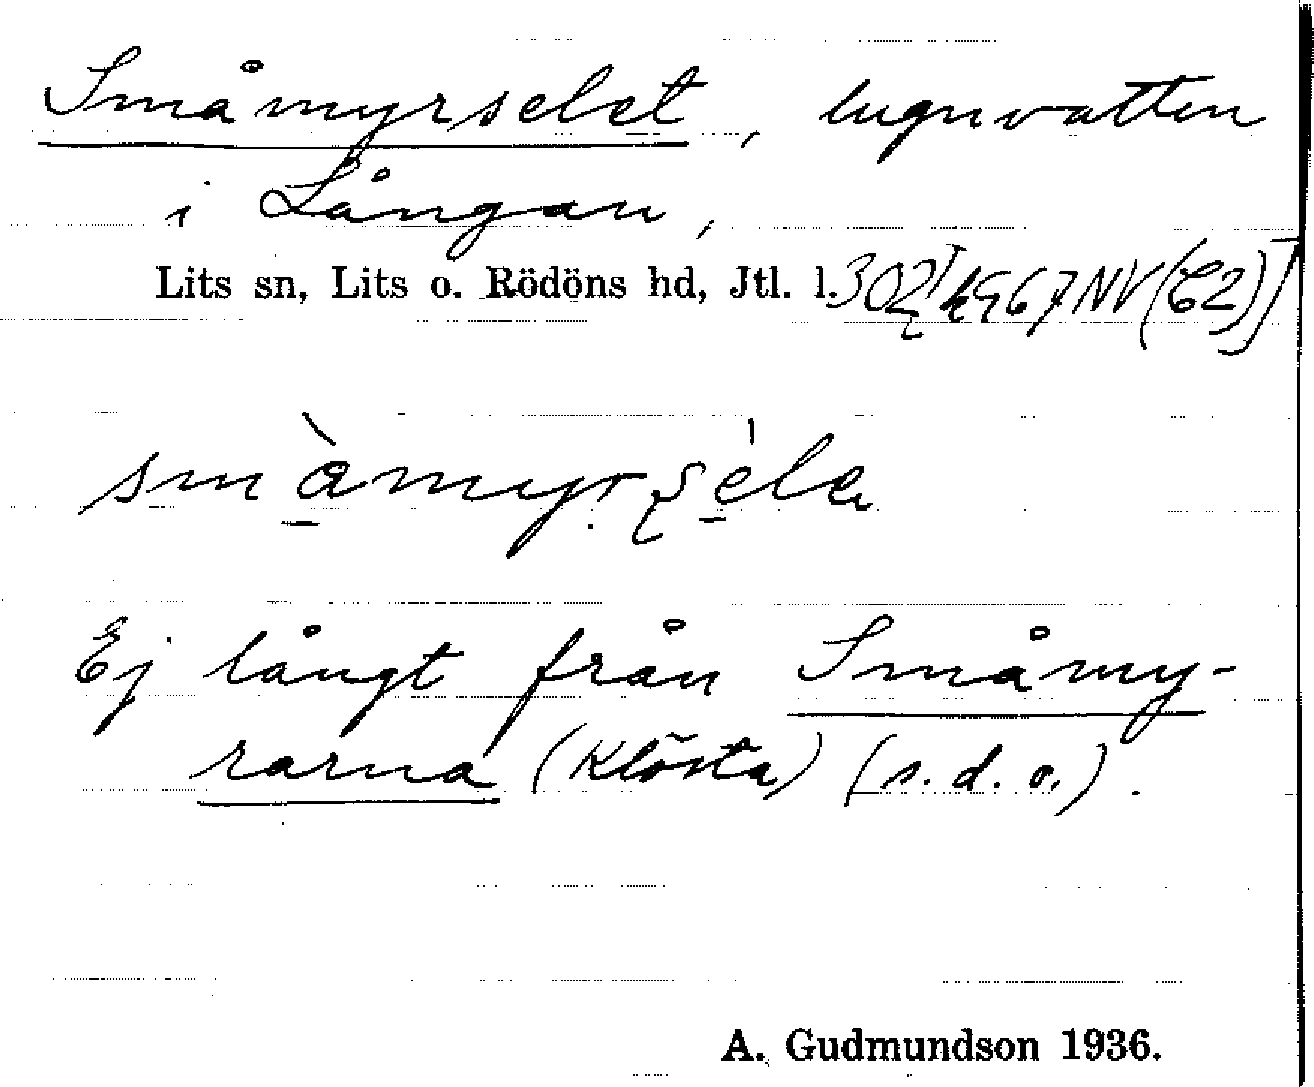 Småmyrselet, lugnvatten
i Långan,
Lits sn, Lits o. Rödöns hd, Jtl. l.
småmyrsela
Ej långt från Småmy-
rarna (Klösta) (s.d.o.).
A. Gudmundson 1936.